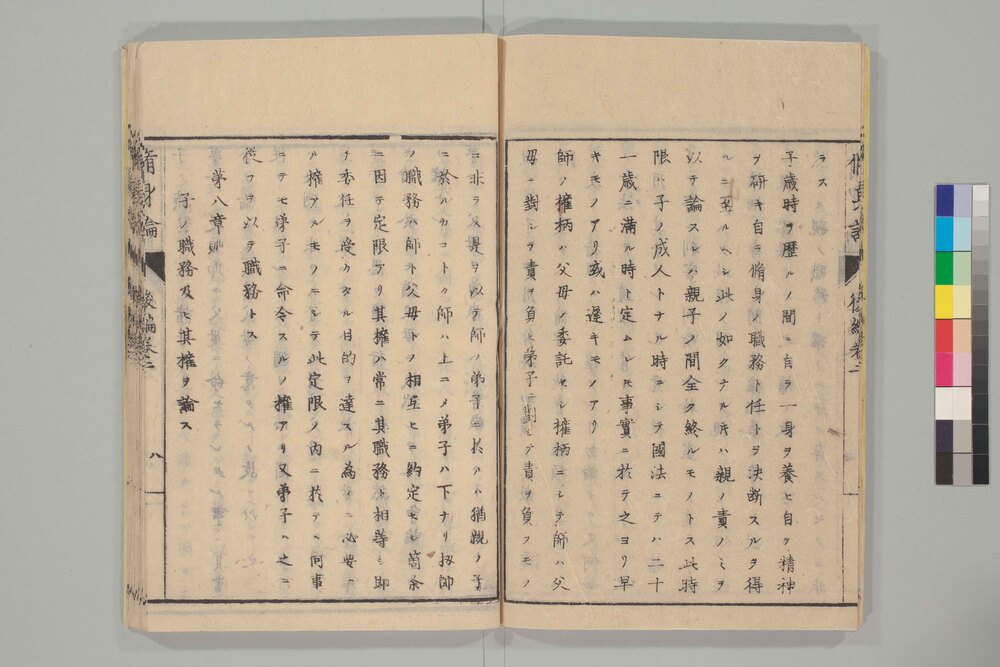 ラス
子歳時ヲ歴ルノ間ニ自ラ一身ヲ養ヒ自ラ精神
ヲ研キ自ラ脩身ノ職務ト任トヲ決断スルヲ得
ルニ至ルヘシ此ノ如クナル片ハ親ノ責ノミヲ
以テ論スレハ親子ノ間全ク終ルモノトス此時
限ハ子ノ成人トナル時ニシテ國法ニテハ二十
一歳ニ満ル時ト定ムレ𪜈事實ニ於テ之ヨリ早
キモノアリ或ハ遅キモノアリ
師ノ權柄ハ父母ノ委託セシ權柄ニシテ師ハ父
母ニ對シテ責ヲ負ヒ弟子ニ對シテ責ヲ負フモノ
ニ非ラス是ヲ以テ師ノ弟子ニ於ルハ猶親ノ子
ニ於ルカコトク師ハ上ニメ弟子ハ下ナリ扨師
ノ職務ハ師ト父母トノ相互ヒニ約定セシ箇条
ニ因テ定限アリ其權ハ常ニ其職務ト相等シ即
チ委任ヲ受ケタル目的ヲ達スル為メニ必要ナ
ル權アルモノニシテ此定限ノ内ニ於テハ何事
ニテモ弟子ニ命令スルノ權アリ又弟子ハ之ニ
從フヲ以テ職務トス
第八章
子ノ職務及ヒ其權ヲ論ス
脩身論
後編卷二
八